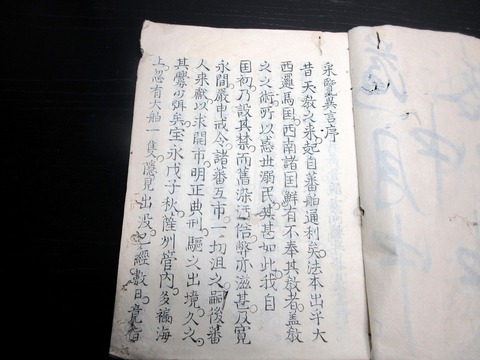 采覽異言序
昔天教之来起自番舶通利矣法本出乎大
西邏馬国西南諸国鮮有不奉其教者盖教
之之術所以惑世溺民其甚如此我自
国初乃設其禁而舊染汚俗弊亦滋甚及寛
永間嚴申戒令諸番互市一切沮之嗣後番
人来獻以求開市明正典刑驅之出境久之
其釁少弭矣宝永戊子秋薩州管内多褹海
上忽有大舶一隻隱見出没也經數日竟